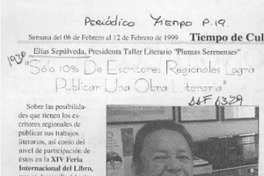 Periódico Tiempo P.19.
Semana del 06 de Febrero al 12 de Febrero de 1999 Tiempo de Cul
Elías Sepúlveda, Presidenta Taller Literario "Plumas Serenenses"
"Sólo 10% De Escritores Regionales Logra
Publicar Una Obra Literaria"
Sobre las posibilida-
des que tienen los es-
critores regionales de
publicar sus trabajos
literarios, así como del
nivel de participación de
éstos en la XIV Feria
Internacional del Libro,